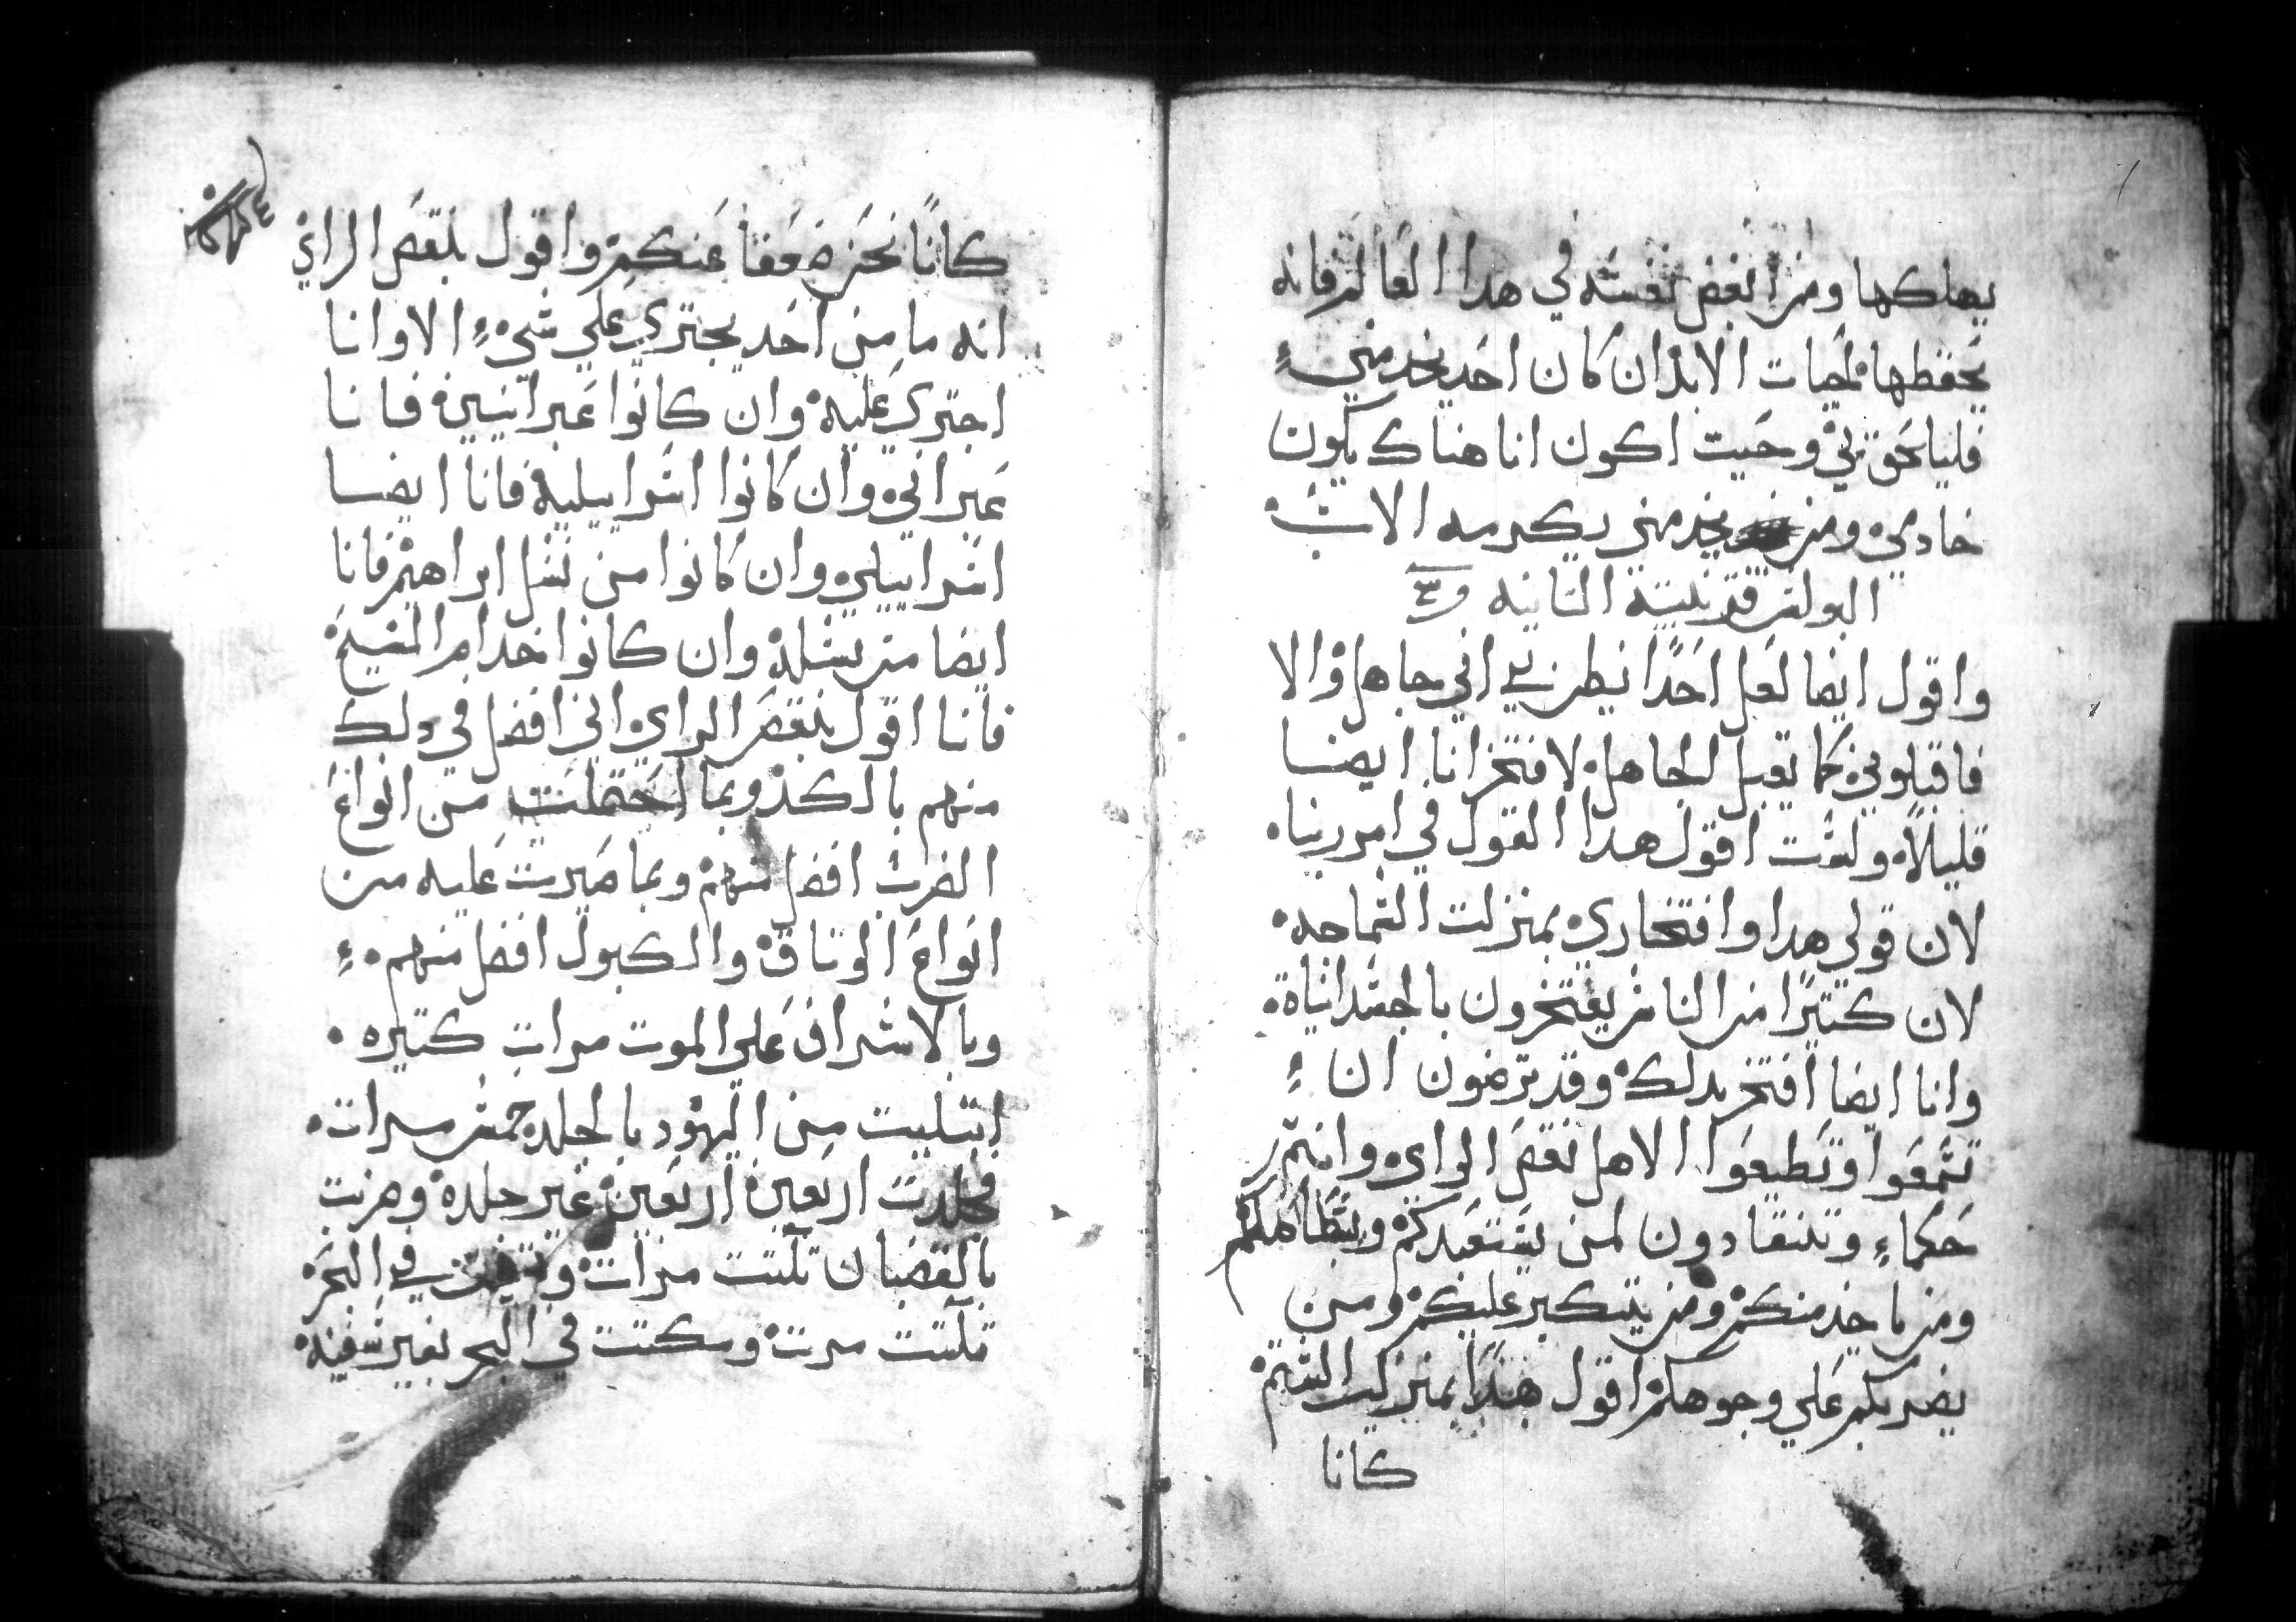 يهلكها ومن ابغض نفسه في هدا العالم فانه
يحفظها لحيات الابد ان كان احد يخدمني
فليلحق بي وحيت اكون انا هناك يكون
خادمي ومن يخدمني يكرمه الاب
البولس قرنتية التانيه
واقول ايضا لعل احدًا يظن بي اني جاهل والا
فاقبلوني كما تقبل الجاهل لافتخر انا ايضا
قليلاً ولست اقول هدا القول في امر ربنا
لان قولي هدا وافتخاري بمنزلت السماجه
لان كتيرًا من الناس يفتخرون بالجسدانياة
وانا ايضا افتخر بدلك وقد ترضون ان
تسمعوا وتطيعوا الاهل نقص الراي وانتم
حكماء وتنقادون لمن يستعبدكم
ومن ياخد منكم ومن يتكبر عليكم ومن
يضربكم علي وجوهكم اقول هدا بمنزلت الشتم
كانا
كانا نحن ضعفا عنكم واقول بنقص الراي
انه ما من احد يجتري علي شيء الا وانا
اجتري عليه وان كانوا عبرانيين فانا
عبراني وان كانوا اسراييلية فانا ايضا
اسراييلي وان كانوا من نسل ابراهيم فانا
ايضا من نسله وان كانوا خدام المسيح
فانا اقول بنقص الراي اني افضل في دلك
منهم بالكد وبما احتملت من انواع
الضرب افضل منهم وبما صبرت عليه من
انواع الوتاق والكبول افضل منهم
وبالاشراف علي الموت مرات كتيره
ابتليت من اليهود بالجلد خمس مرات
فجلدت اربعين اربعين غير جلدة وضربت
بالقضبان تلتت مرات في البحر
تلتت مرت ومكتت في البحر بغير سفينة